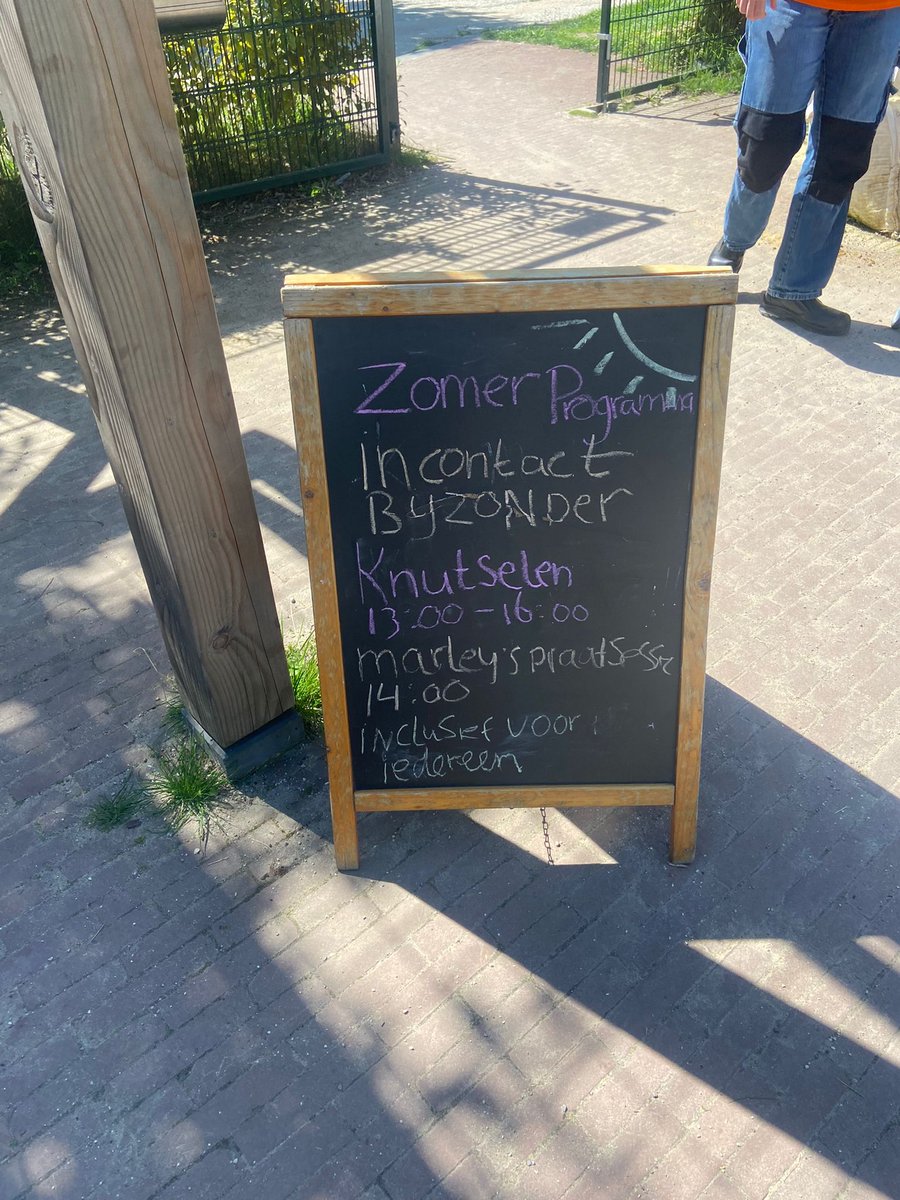 Zomer Programma
In contact
Byzonder
Knutselen
13:00 - 16:00
marley's praat
14:00
inclusief voor
iedereen